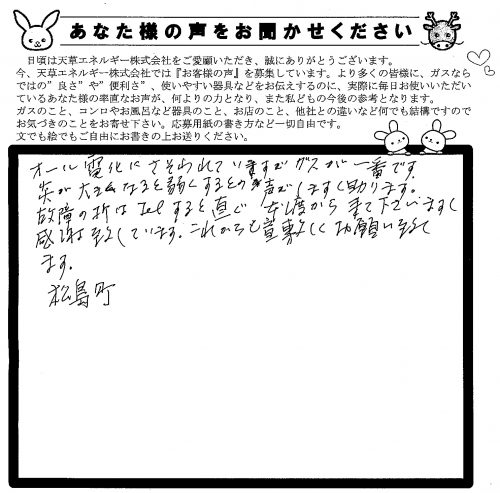 あなた様の声をお聞かせください
日頃は天草エネルギー株式会社をご愛顧いただき、誠にありがとうございます。
今、天草エネルギー株式会社では『お客様の声』を募集しています。より多くの皆様に、ガスなら
ではの”良さ”や”便利さ”、使いやすい器具などをお伝えするのに、実際に毎日お使いいただい
ているあなた様の率直なお声が、何よりの力となり、また私どもの今後の参考となります。
ガスのこと、コンロやお風呂など器具のこと、お店のこと、他社との違いなど何でも結構ですので
お気づきのことをお寄せ下さい。応募用紙の書き方など一切自由です。
文でも絵でもご自由にお書きの上お送りください。
オール電化にさそわれていますがガスが一番です。
炎が大きくなると弱くするとの声がしますく助ります。
故障の折はTelすると直ぐ本渡から来て下さいますし
感謝致しています。これからも宜敷しくお願い致し
ます。
松島町